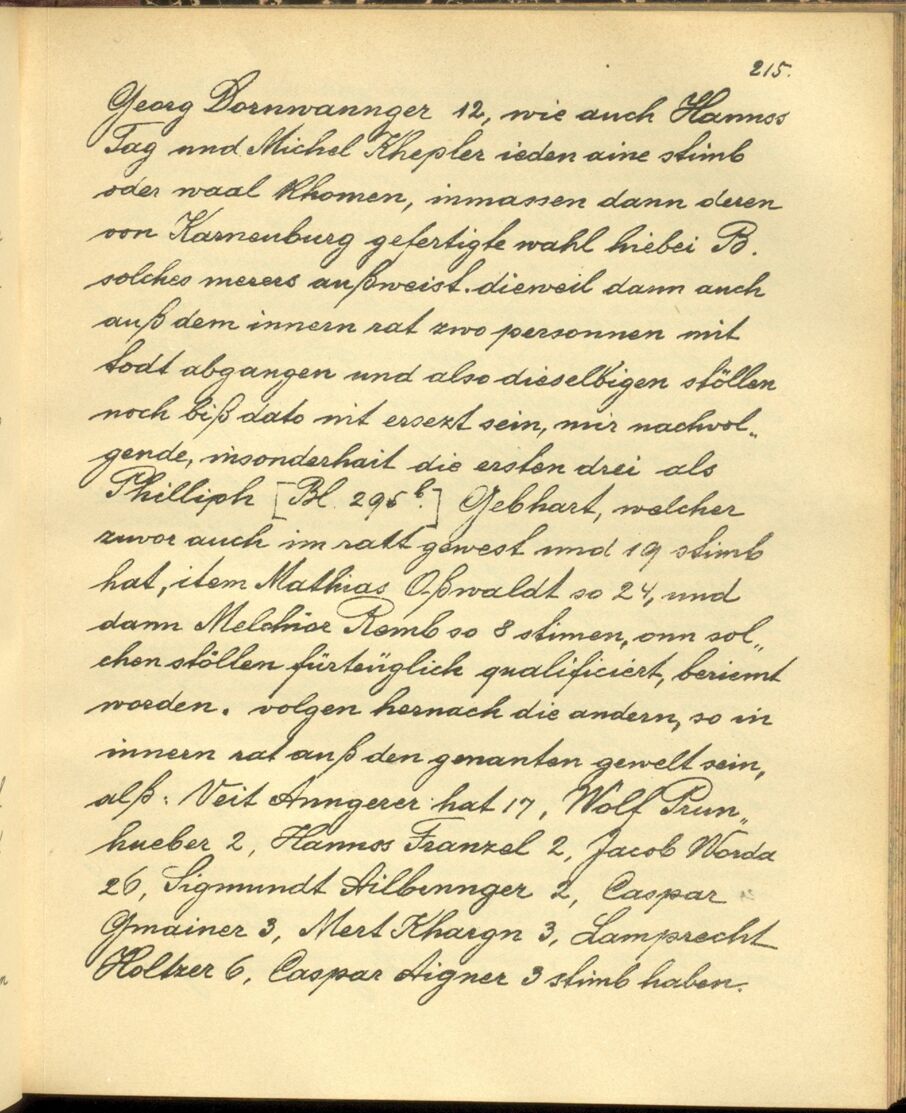 215.
Georg Dornwannger 12, wie auch Hannss
Tag und Michel Khepler ieden aine stimb
oder waal khomen, inmassen dann deren
von Karneuburg gefertigte wahl hiebei B.
solches merers außweist. dieweil dann auch
auß dem innern rat zwo personnen mit
todt abgangen und also dieselbigen stöllen
noch biß dato nit ersezt sein, mir nachvol„
gende, insonderhait die ersten drei als
Philliph [Bl. 295 b.] Gebhart, welcher
zuvor auch im ratt gewest und 19 stimb
hat, item Mathias Oßwaldt so 24, und
dann Melchior Remb so 8 stimen, onn sol„
chen stöllen fürteüglich qualificiert, beriemt
worden. volgen hernach die andern, so in
innern rat auß den genanten gewelt sein,
alß: Veit Anngerer hat 17, Wolf Prun„
hueber 2, Hannss Franzel 2, Jacob Worda
26, Sigmundt Ailbmnger 2, Caspar
Gmainer 3, Mert Khargn 3, Lamprecht
Holtzer 6, Caspar Aigner 3 stimb haben.